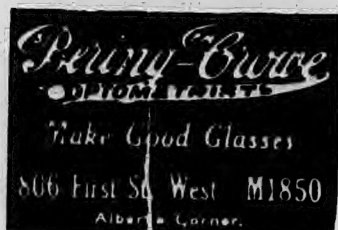 Bering-Curoe
OPTOMETRISTS
Make Good Glasses
806 First St. West M1850
Alberta Corner.